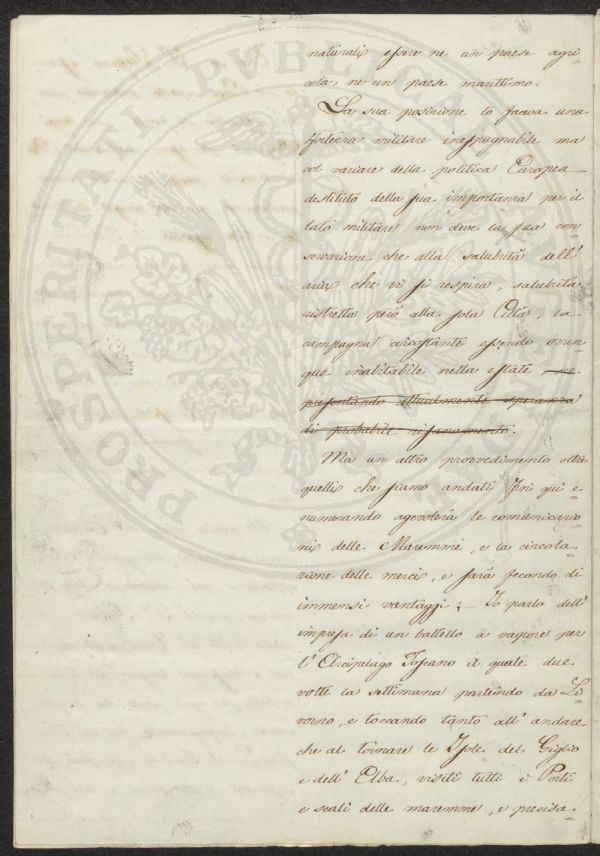 naturali essere ne un paese agri
cola, ne un paese marittimo.
La sua posizione lo faceva una
fortezza militare inespugnabile ma
col variare della politica Europea
destituto della sua importanza per il
lato militare non deve la sua con
servazione che alla salubrità dell'
aria che vi si respira, salubrità
ristretta però alla sola Città, la
campagna circostante essendo ovun
que inabitabile nella estate
presentando attualmente speranza
di probabile risanamento.
Ma un altro provvedimento oltre
quelli che siamo andati fin qui e-
numerando agevolerà le comunicazio
ni delle Maremme, e la circola-
zione delle merci, e sarà fecondo di
immensi vantaggi; – Io parlo dell'
impresa di un battello a vapore per
l'Arcipelago Toscano il quale due
volte la settimana partendo da Li
vorno, e toccando tanto all' andare
che al tornare le Isole del Giglio
e dell' Elba, visiti tutti i Porti
e scali delle maremme, e precisa-
PROSPERITATI PVBLICAE